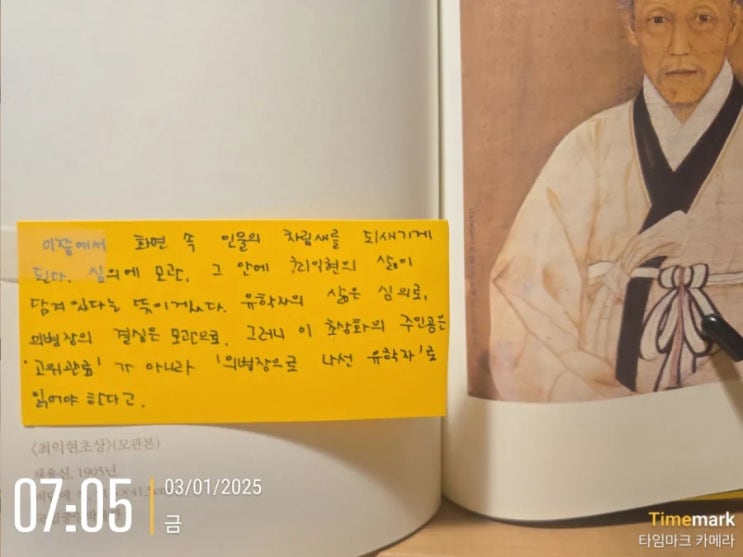 이쯤에서 화면 속 인물의 차림새를 되새기게
된다. 심의에 모관, 그 안에 최익현의 삶이
담겨 있다는 뜻이겠다. 유학자의 삶은 심의로,
의병장의 결심은 모관으로. 그러니 이 초상화의 주인공은
'고위관료'가 아니라 '의병장으로 나선 유학자'로
읽어야 한다고.
〈최익현초상〉(모관본)
채용신, 1905년
41.5cm
07:05
03/01/2025
금
Timemark
타임마크 카메라